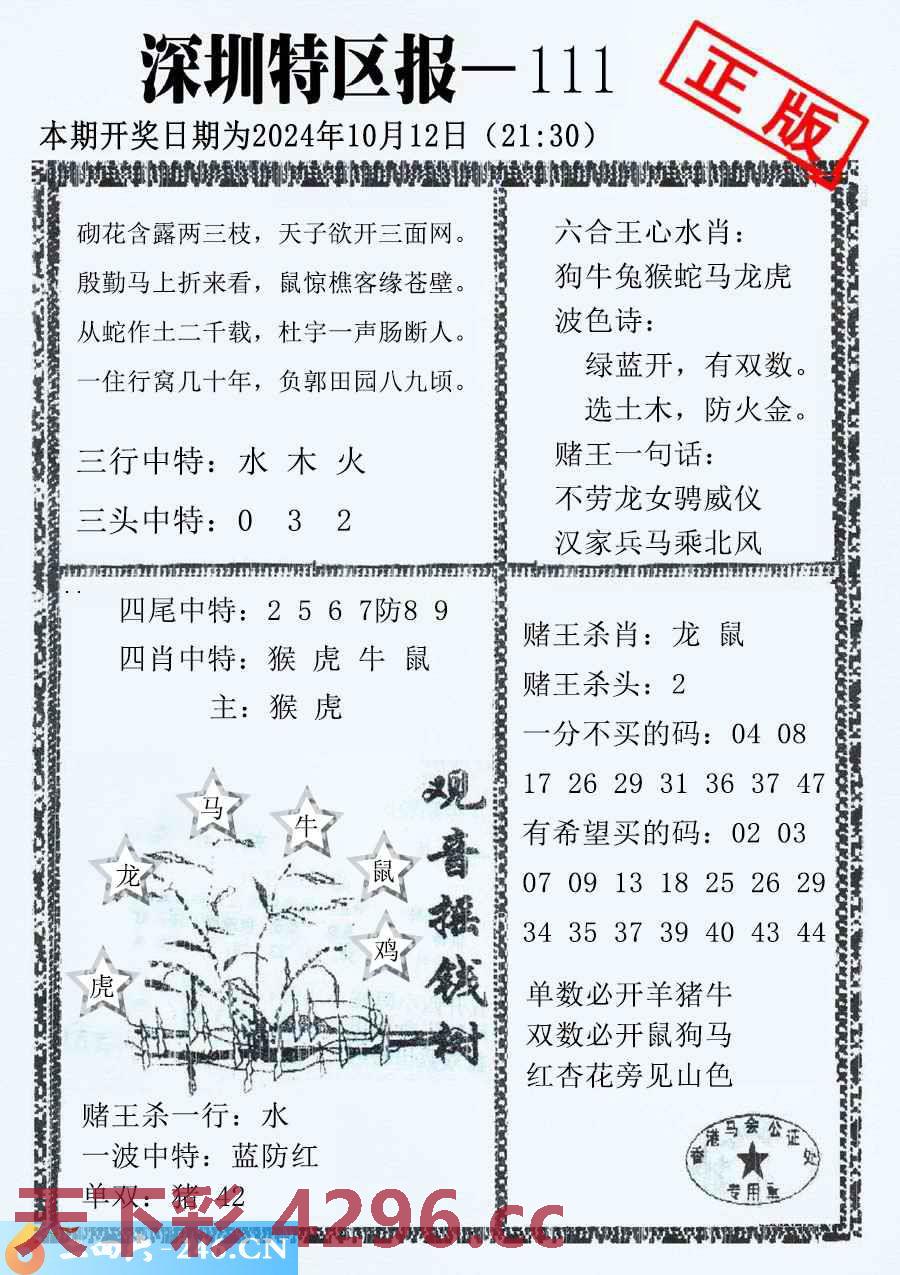 深圳特区报—111
正版
本期开奖日期为2024年10月12日（21:30）
砌花含露两三枝，天子欲开三面网。
殷勤马上折来看，鼠惊樵客缘苍壁。
从蛇作土二千载，杜宇一声肠断人。
一住行窝几十年，负郭田园八九顷。
三行中特：水 木 火
三头中特：0 3 2
六合王心水肖：
狗牛兔猴蛇马龙虎
波色诗：
绿蓝开，有双数。
选土木，防火金。
赌王一句话：
不劳龙女骋威仪
汉家兵马乘北风
四尾中特：2 5 6 7防8 9
四肖中特：猴 虎 牛 鼠
主：猴 虎
马
牛
龙
鼠
鸡
虎
观音摇钱树
赌王杀一行：水
一波中特：蓝防红
单双：猪 42
赌王杀肖：龙 鼠
赌王杀头：2
一分不买的码：04 08
17 26 29 31 36 37 47
有希望买的码：02 03
07 09 13 18 25 26 29
34 35 37 39 40 43 44
单数必开羊猪牛
双数必开鼠狗马
红杏花旁见山色
香港马会公证处
专用章
天下彩 4296.cc
-246.CN